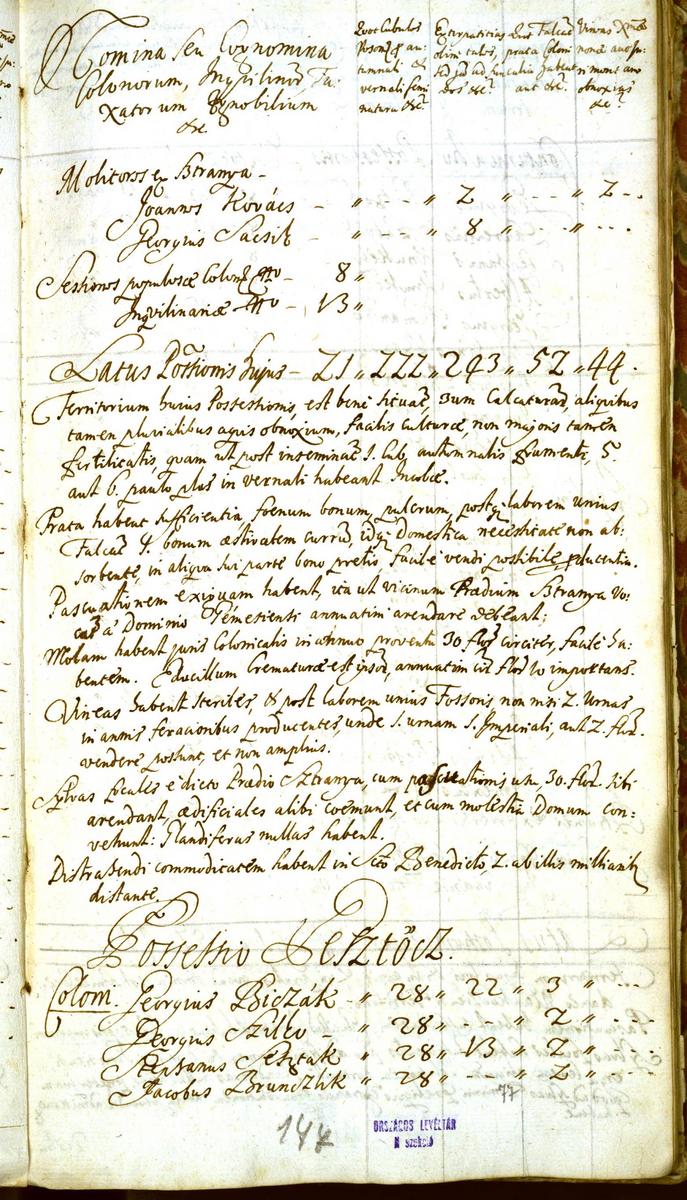 Nomina seu Cognomina
Colonorum, Inqvilinor̃ Ta:
xatorum Ignobilium
&c̃
Quot Cubulos
Poson̄ & au-
tumnali &
vernali semi
natura &c̃
Extirpatitias
olim tales,
Quot Falcat̃
prata Coloni
habent
aut &c̃
Vineas
nonæ
obnoxias
&c̃
Molitores ex Sztranya –
Joannes Kovács – „ – – „ 2 „ – – „ 2 – .
Georgius Sacsik – „ – – „ 8 „ – . „ . . .
Sessiones populosæ Colon̄ – 8 „
Inqvilinariæ – 13 „
Latus Possionis hujus – 21 „ 222 „ 243 „ 52 „ 44 .
Territorium huius Possessionis, est bene situat̃, 3um Calcaturar̃, aliquibus
tamen pluvialibus aqvis obnoxium, facilis culturæ, non majoris tamen
fertilitatis, quam ut post inseminat̃ 1. Cub, autumnalis frumenti, 5.
aut 6. paulo plus in vernali habeant Incolæ.
Prata habent sufficientia, foenum bonum, pulcrum, post laborem unius
Falcat̃ 4. bonum æstivalem currũ, idq̃ Domestica necessitate non ab:
sorbente, in aliqva sui parte bono pretio, facile vendi possibile producentia.
Pascuationem exiguam habent, ita ut vicinum Prædium Sztranya vo:
cat̃ a Domino Nemesienti annuatim arendare debeant;
Molam habent juris Colonicalis in annuo proventu 30 flor̃ circiter, facile ha:
bentem. Educillum Crematuræ est ipsor̃, annuatim cir̃ flor̃ 10 importans.
Vineas habent steriles, & post laborem unius Fossoris, non nisi 2. Urnas
in annis feracioribus producentes, unde 1. urnam 1. Imperiali, aut 2. flor̃.
vendere possunt, et non amplius.
Sylvas focales e dicto Prædio Sztranya, cum pascuationis usu, 30. flor̃. sibi
arendant, ædificiales alibi coemunt, et cum molestia Domum con:
vehunt: Glandiferas nullas habent.
Distrahendi commoditatem habent in Scto Benedicto, 2. ab illis milliarib
distante.
Possessio Nesztöcz.
Coloni. Georgius Biczák – „ 28 „ 22 „ 3 „ – . . .
Georgius Szilto – „ 28 „ – – „ 2 „ – . – .
Stephanus Sesztak „ 28 „ 13 „ 2 „
Jacobus Brunczlik „ 28 „ – – „ 2 „ – . . . .
77
147
ORSZÁGOS LEVÉLTÁR
N szekció